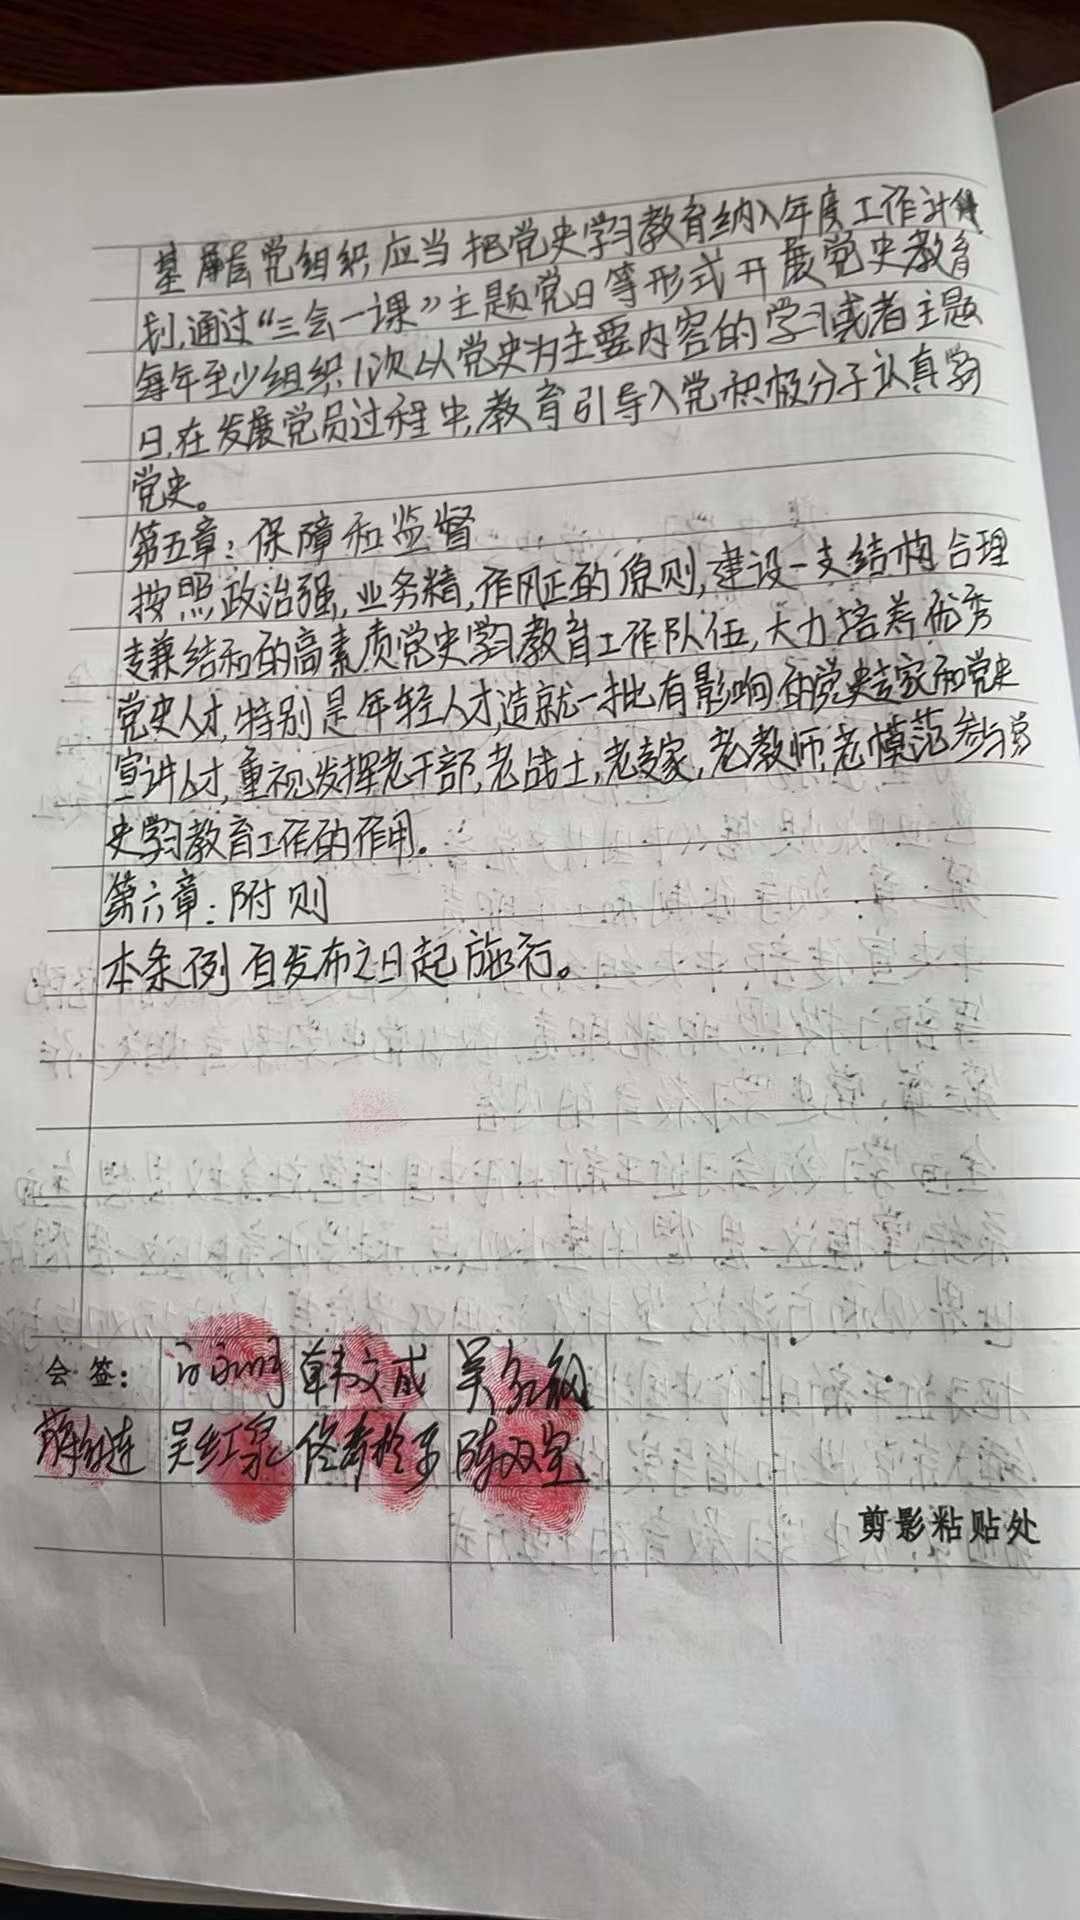 基层党组织应当把党史学习教育纳入年度工作计
划,通过“三会一课”主题党日等形式开展党史教育
每年至少组织1次以党史为主要内容的学习或者主题
日,在发展党员过程中,教育引导入党积极分子认真学
党史。
第五章:保障和监督
按照政治强,业务精,作风正的原则,建设一支结构合理
专兼结和的高素质党史学习教育工作队伍,大力培养优秀
党史人才,特别是年轻人才,造就一批有影响的党史专家和党史
宣讲人才,重视发挥老干部,老战士,老专家,老教师,老模范参与党
史学习教育工作的作用。
第六章:附则
本条例自发布之日起施行。
会签: 韩文成
吴红泉 陈双宝
剪影粘贴处